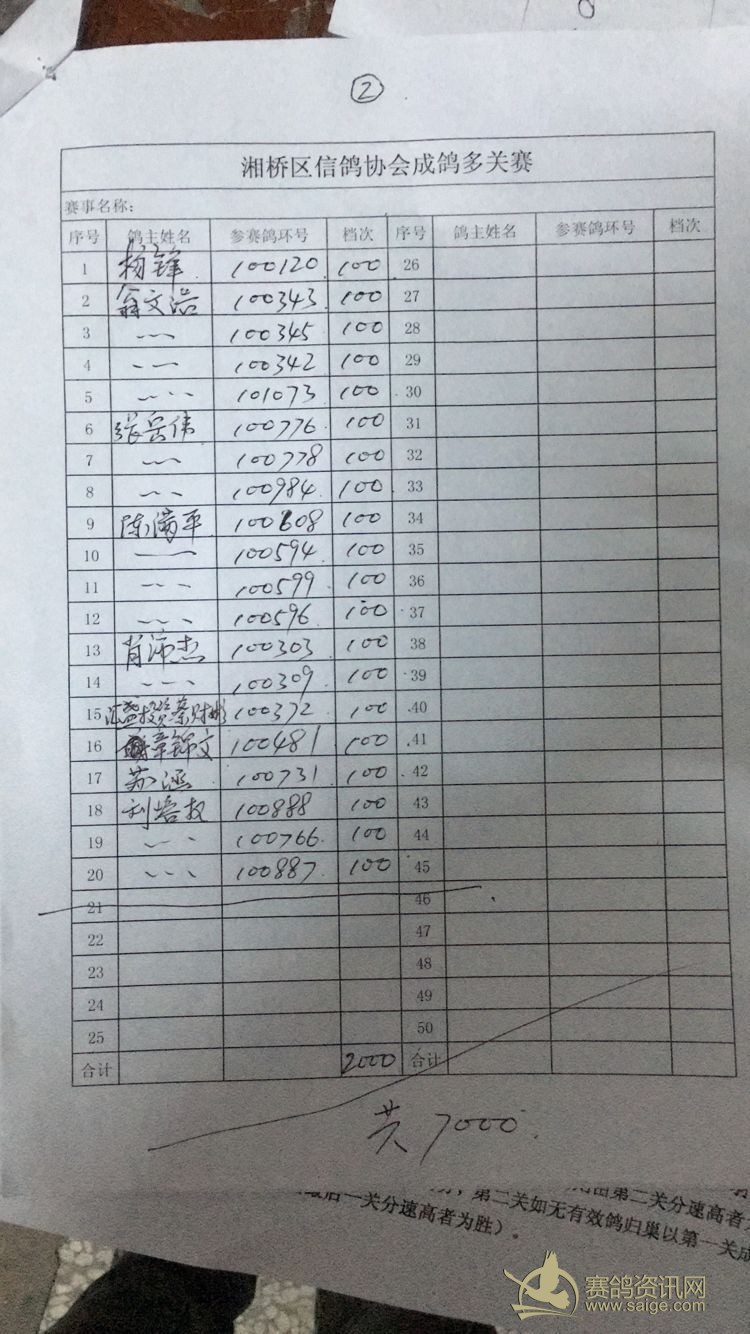 ②
湘桥区信鸽协会成鸽多关赛
赛事名称:
序号 鸽主姓名 参赛鸽环号 档次 序号 鸽主姓名 参赛鸽环号 档次
1 杨锋 100120 100 26
2 翁文浩 100343 100 27
3 〃 100345 100 28
4 〃 100342 100 29
5 〃 101073 100 30
6 张岳伟 100776 100 31
7 〃 100778 100 32
8 〃 100984 100 33
9 陈满平 100608 100 34
10 〃 100594 100 35
11 〃 100599 100 36
12 〃 100596 100 37
13 肖沛杰 100303 100 38
14 〃 100309 100 39
15 汇盛投资蔡财彬 100372 100 40
16 章锦文 100481 100 41
17 苏涵 100731 100 42
18 刘培权 100888 100 43
19 〃 100766 100 44
20 〃 100887 100 45
21 46
22 47
23 48
24 49
25 50
合计 2000 合计
共7000
第二关如无有效鸽归巢以第一关成
后一关分速高者为胜）。
由第二关分速高者
赛鸽资讯网
www.saige.com